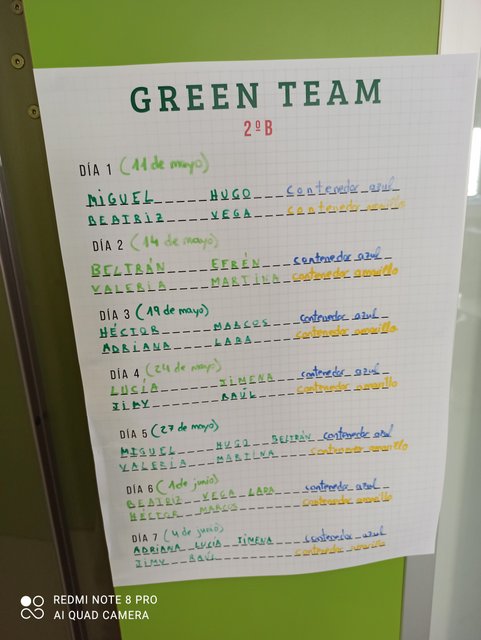 GREEN TEAM
2ºB
DÍA 1 (11 de mayo)
MIGUEL HUGO contenedor azul
BEATRIZ VEGA contenedor amarillo
DÍA 2 (14 de mayo)
BELTRÁN EFRÉN contenedor azul
VALERIA MARTINA contenedor amarillo
DÍA 3 (19 de mayo)
HÉCTOR MARCOS contenedor azul
ADRIANA LARA contenedor amarillo
DÍA 4 (24 de mayo)
LUCÍA JIMENA contenedor azul
JIMY RAÚL contenedor amarillo
DÍA 5 (27 de mayo)
MIGUEL HUGO BELTRÁN contenedor azul
VALERIA MARTINA contenedor amarillo
DÍA 6 (1 de junio)
BEATRIZ VEGA LARA contenedor azul
HÉCTOR MARCOS contenedor amarillo
DÍA 7 (4 de junio)
ADRIANA LUCÍA JIMENA contenedor azul
JIMY RAÚL contenedor amarillo
REDMI NOTE 8 PRO
AI QUAD CAMERA